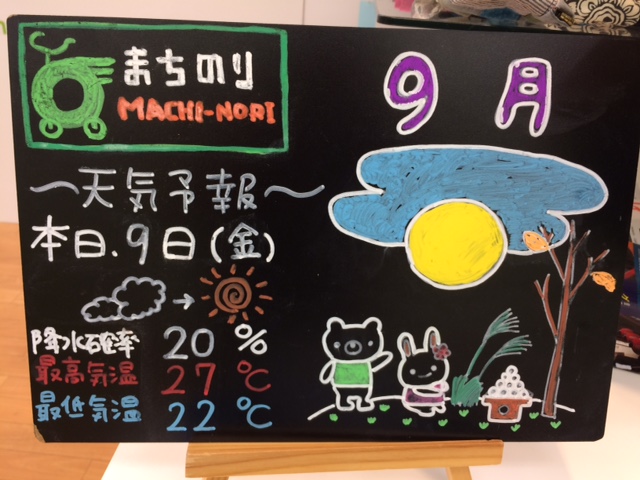 まちのり
MACHI-NORI
9月
〜天気予報〜
本日.9日(金)
→
降水確率 20 %
最高気温 27 ℃
最低気温 22 ℃